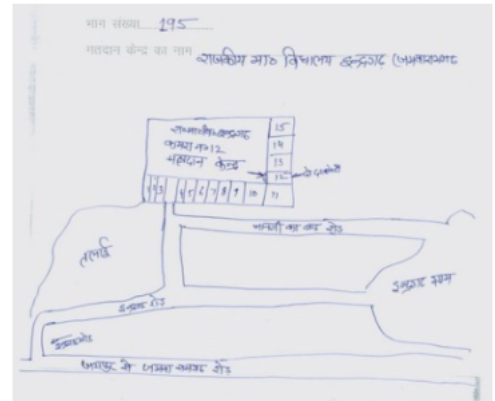 भाग संख्या 195
मतदान केन्द्र का नाम राजकीय मा० विद्यालय इन्द्रगढ़ (जमवारामगढ़
कमरा न० 12
मतदान केन्द्र
15
14
13
12
1 2 3 4 5 6 7 8 9 10 11
रोड
तलाई
इन्द्रगढ़ ग्राम
इन्द्रगढ़ रोड
जयपुर से जमवा रामगढ़ रोड